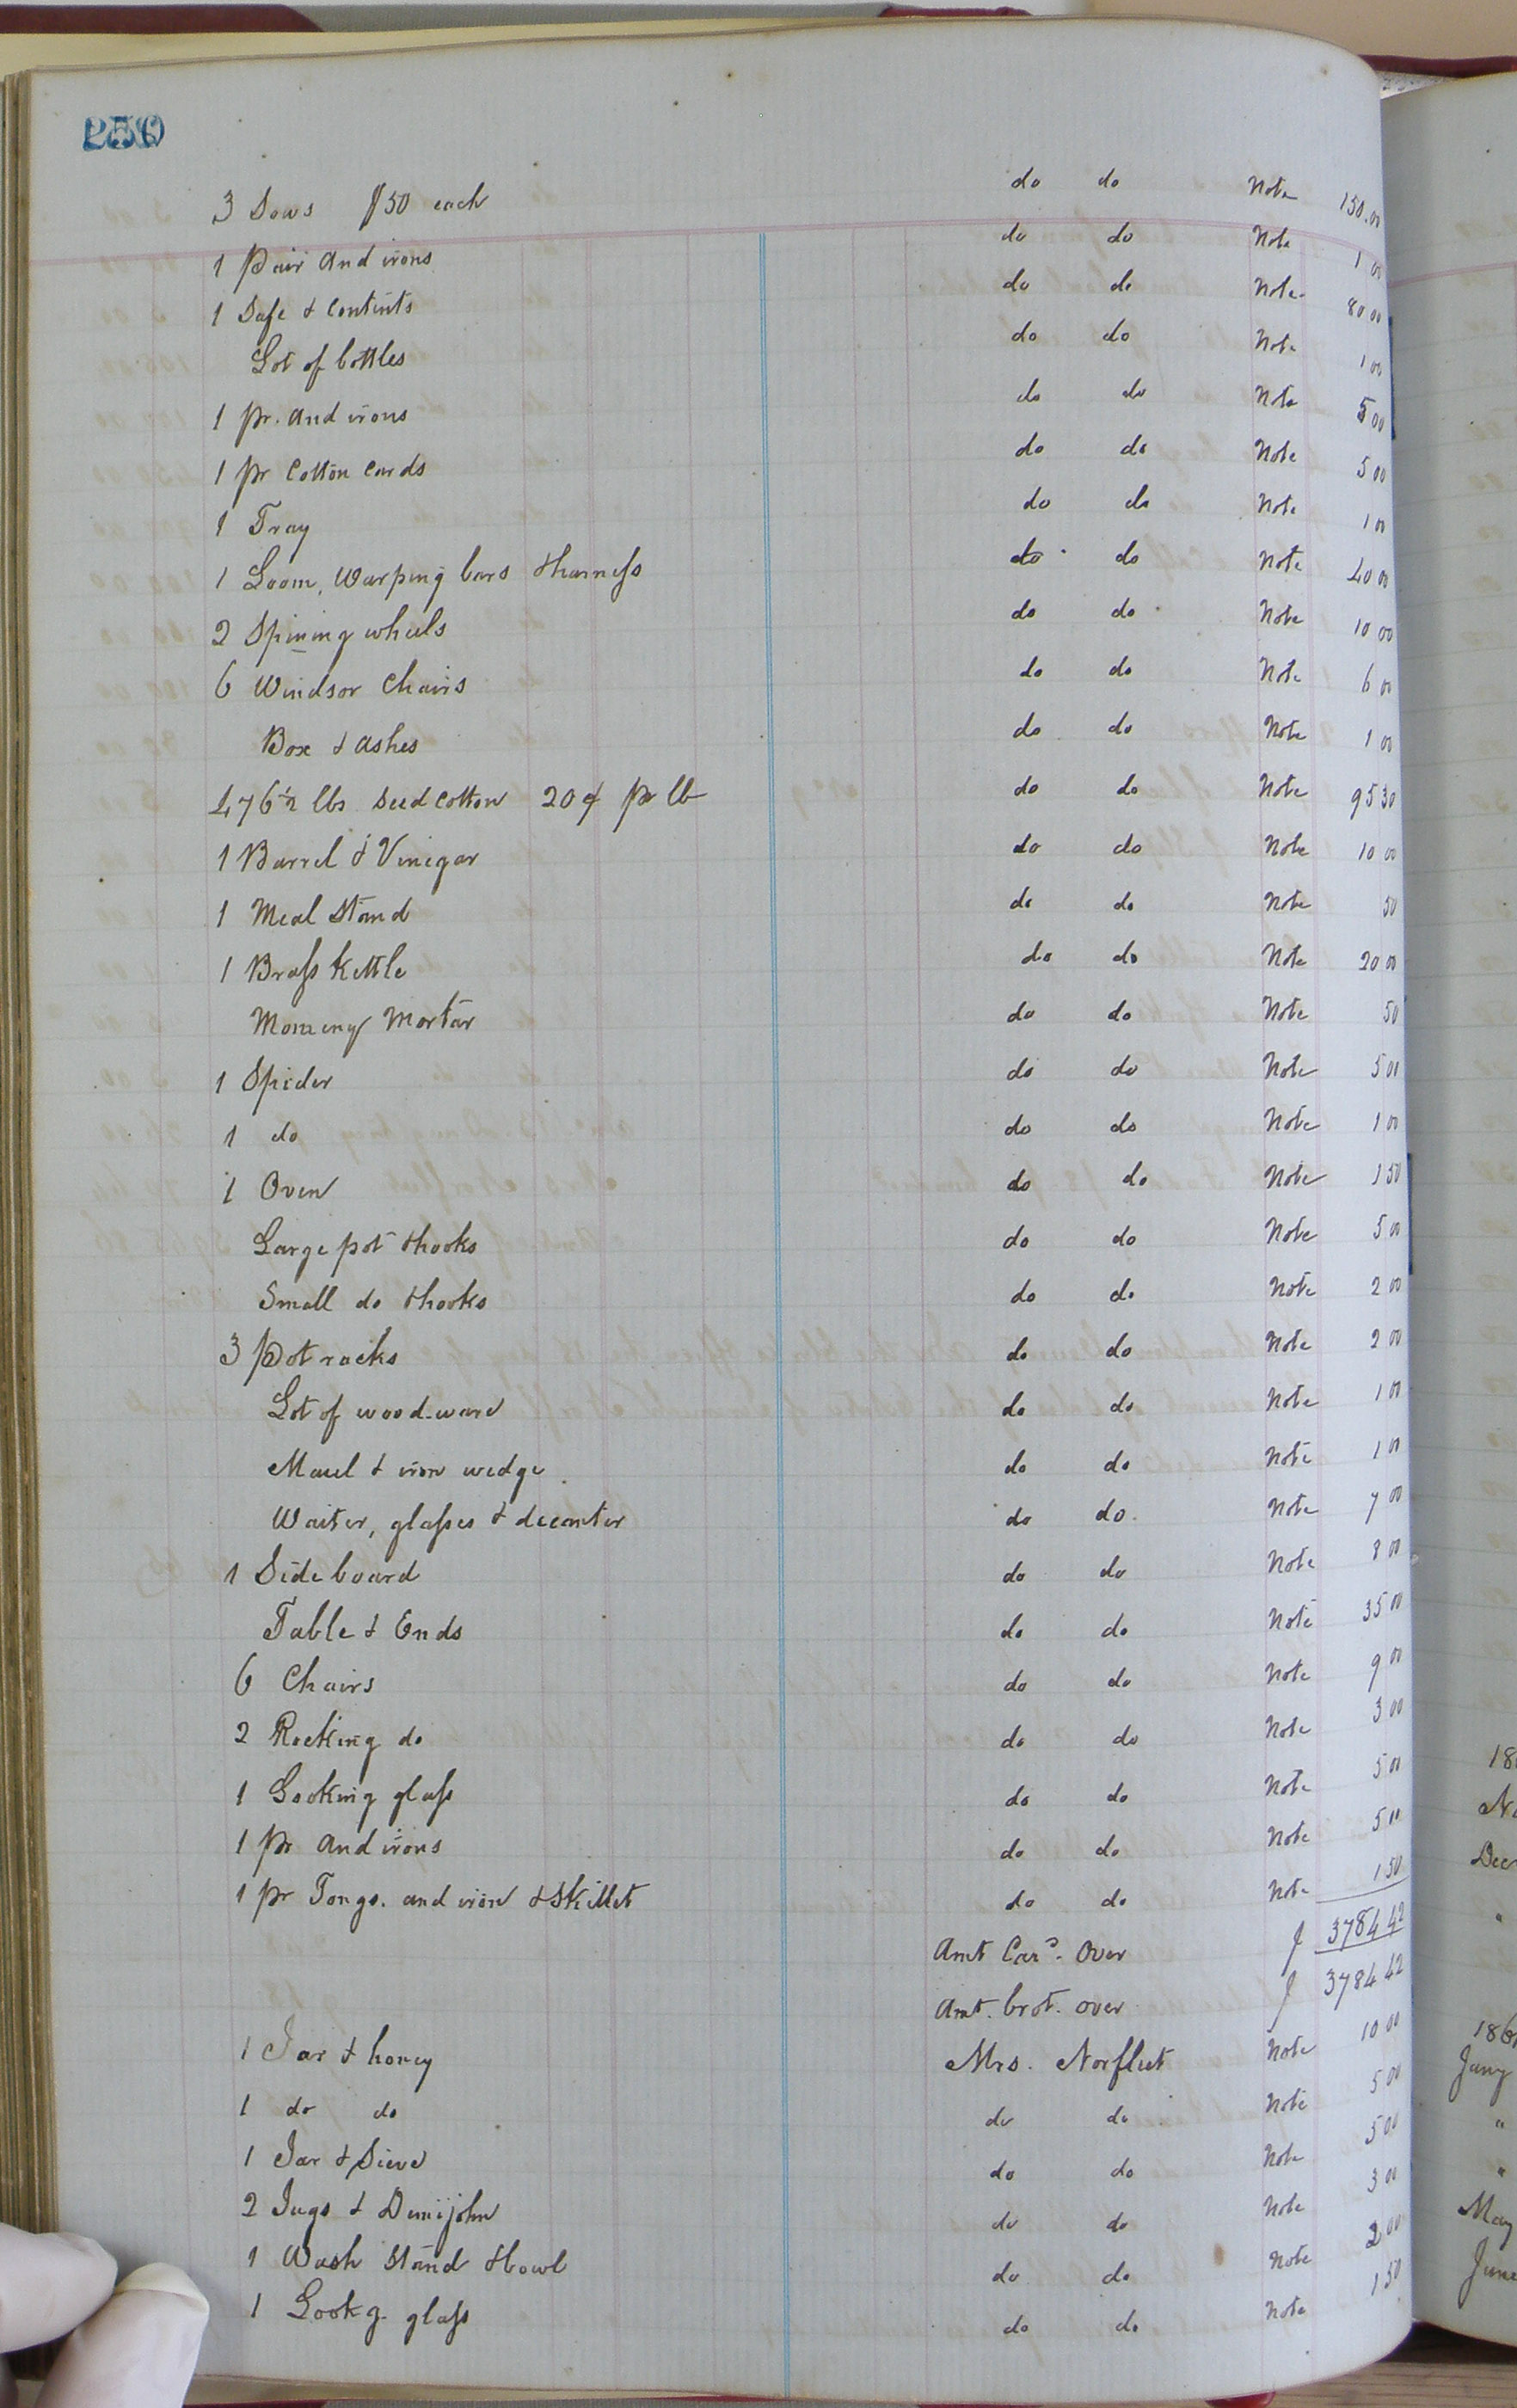 250
3 Sows $50 each do do Note 150.00
1 Pair And irons do do Note 1 00
1 Safe & Contents do do Note 80 00
Lot of bottles do do Note 1 00
1 pr. And irons do do Note 5 00
1 pr Cotton Cards do do Note 5 00
1 Tray do do Note 1 00
1 Loom, Warping bars & harness do do Note 40 00
2 Spining wheels do do Note 10 00
6 Windsor Chairs do do Note 6 00
Box & Ashes do do Note 1 00
476½ lbs Seed Cotton 20¢ pr lb do do Note 95 30
1 Barrel & Vinegar do do Note 10 00
1 Meal Stand do do Note 50
1 Brass Kettle do do Note 20 00
Mortar do do Note 50
1 Spider do do Note 5 00
1 do do do Note 1 00
1 Oven do do Note 1 50
Large pot & hooks do do Note 5 00
Small do & hooks do do Note 2 00
3 Pot racks do do Note 2 00
Lot of wood-ware do do Note 1 00
Maul & iron wedge do do Note 1 00
Waiter, glasses & decanter do do Note 7 00
1 Side board do do Note 8 00
Table & Ends do do Note 35 00
6 Chairs do do Note 9 00
2 Rocking do do do Note 3 00
1 Looking glass do do Note 5 00
1 pr And irons do do Note 5 00
1 pr Tongs. and iron & Skillet do do Note 1 50
Amt Card. Over $ 3784 42
Amt. brot. over $ 3784 42
1 Jar & honey Mrs. Norfleet Note 10 00
1 do do do do Note 5 00
1 Jar & Sieve do do Note 5 00
2 Jugs & Demijohn do do Note 3 00
1 Wash Stand & bowl do do Note 2 00
1 Lookg. glass do do Note 1 50
18
Dec
186
Jany
"
"
May
June